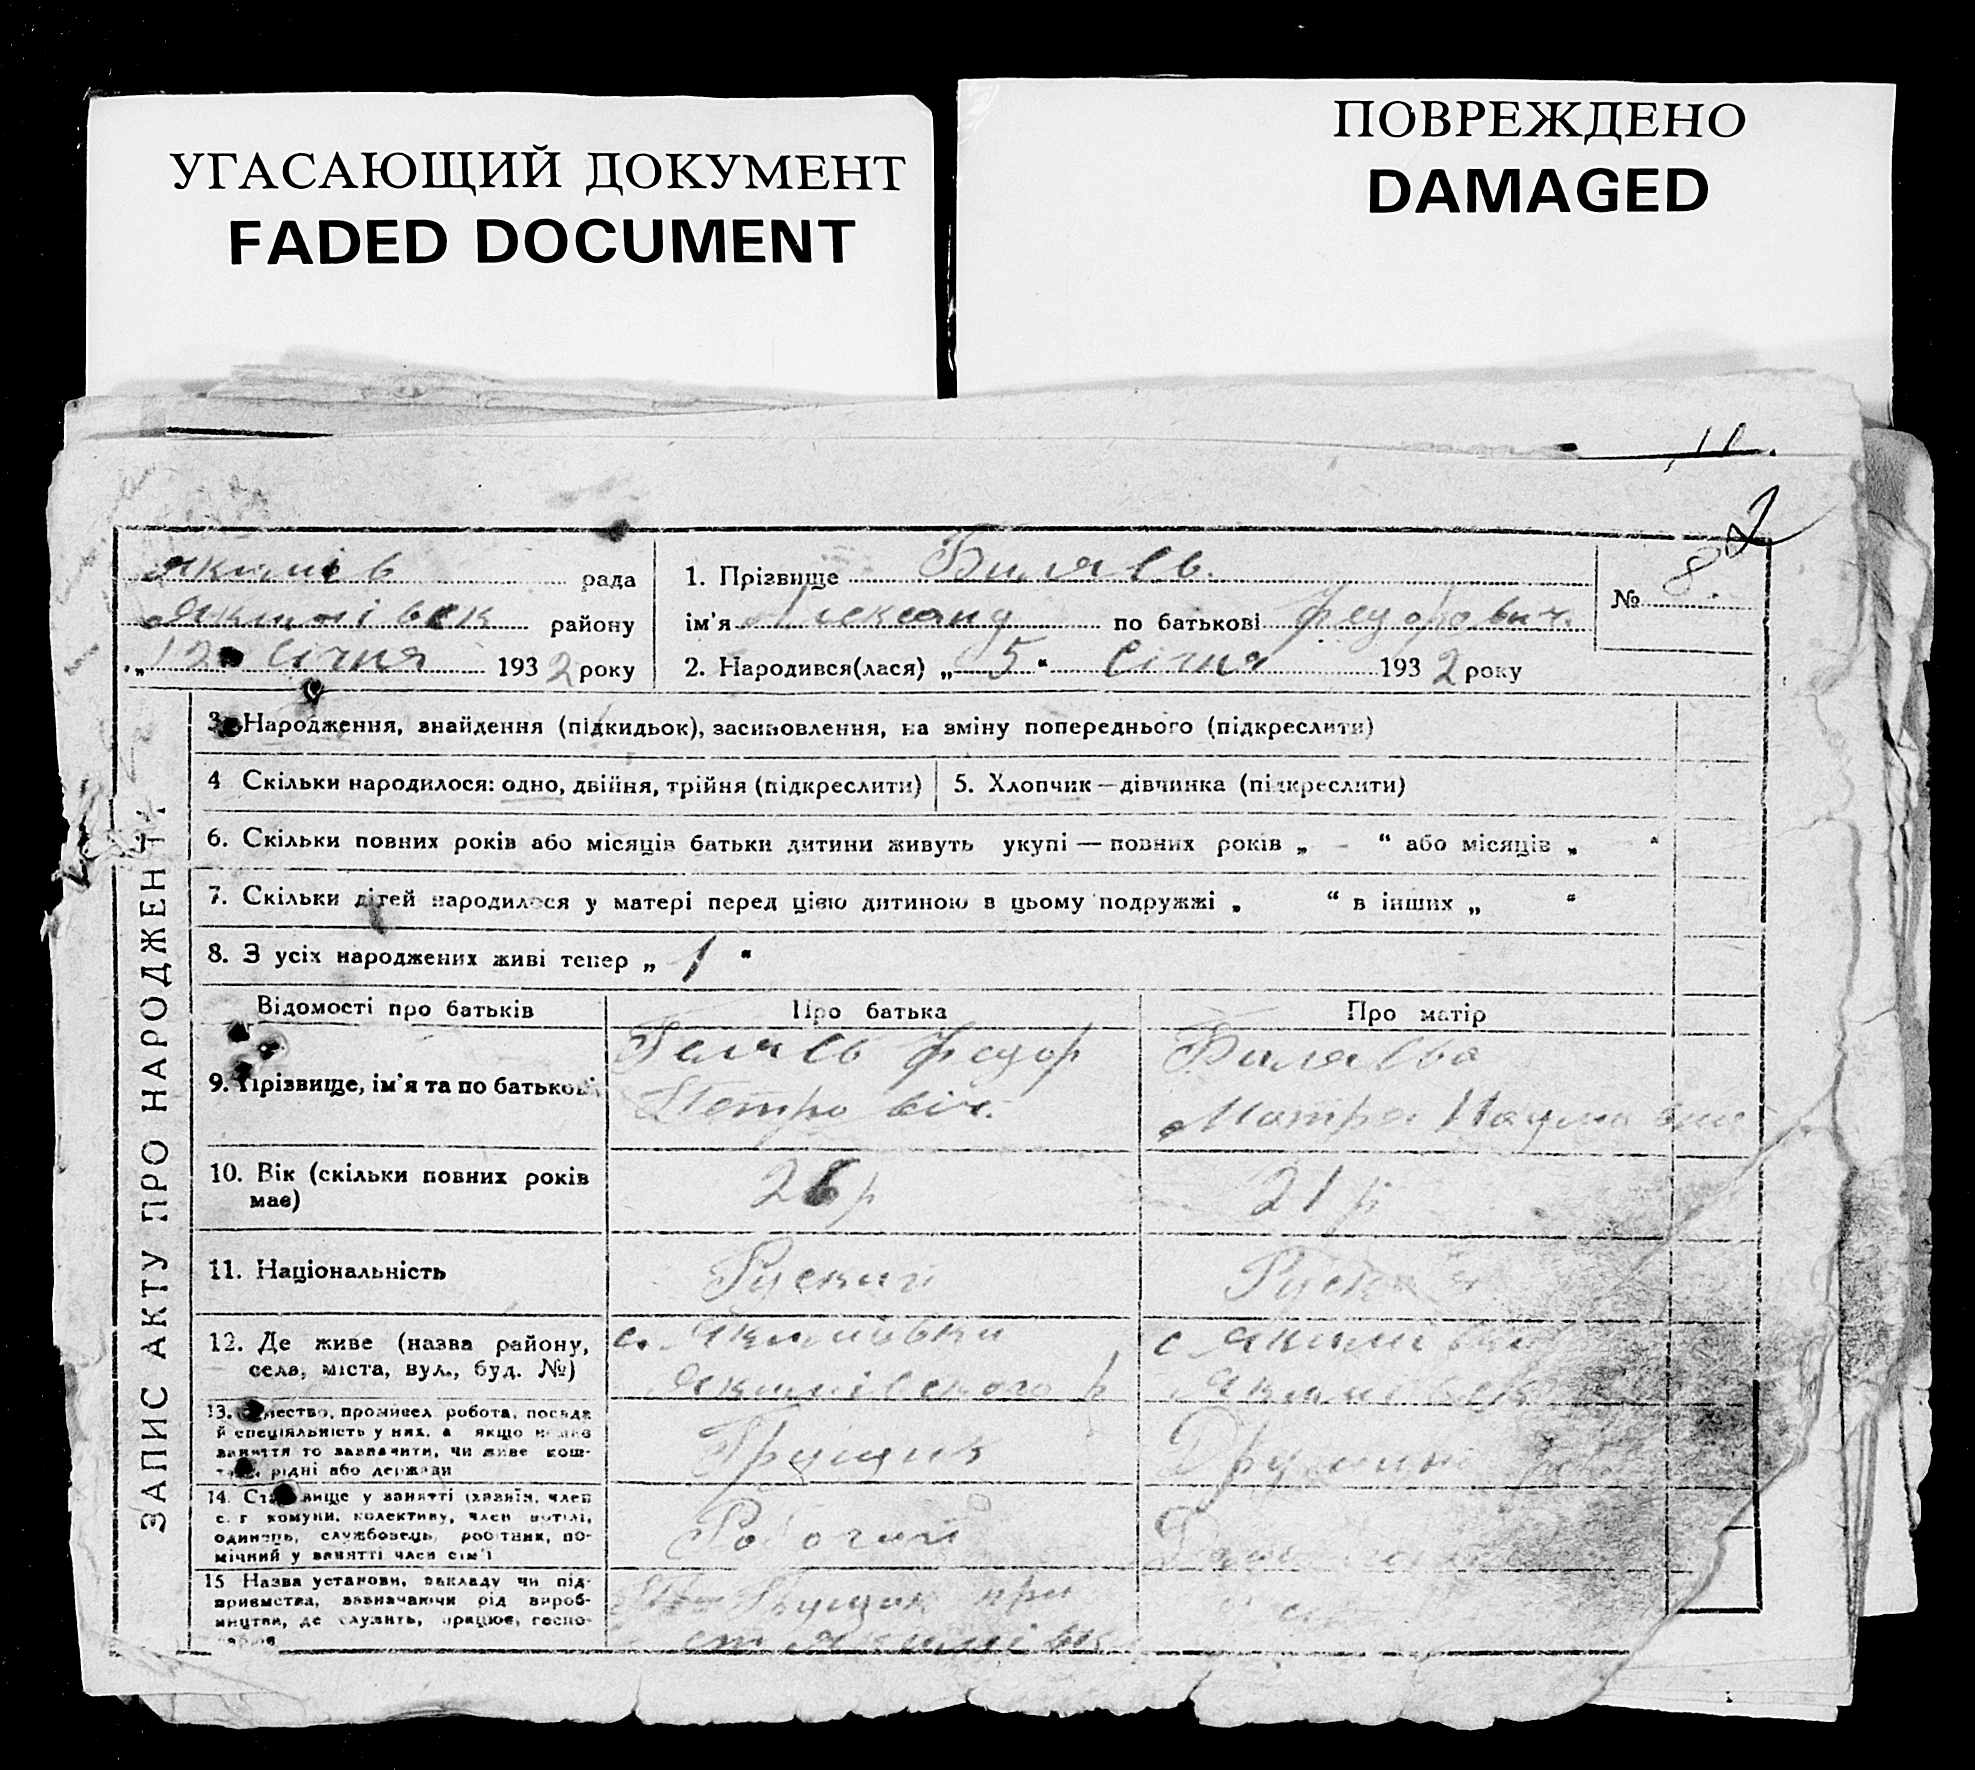 УГАСАЮЩИЙ ДОКУМЕНТ
FADED DOCUMENT
ПОВРЕЖДЕНО
DAMAGED
2
Якимів рада
Якимівськ району
„12 Січня 1932 року
1. Прізвище Биляєв.
ім'я Александ по батькові Федорович.
2. Народився(лася) „5“ Січня 1932 року
№ 8.
ЗАПИС АКТУ ПРО НАРОДЖЕННЯ.
3. Народження, знайдення (підкидьок), засиновлення, на зміну попереднього (підкреслити)
4 Скільки народилося: одно, двійня, трійня (підкреслити)
5. Хлопчик — дівчинка (підкреслити)
6. Скільки повних років або місяців батьки дитини живуть укупі — повних років „ - “ або місяців „ “
7. Скільки дітей народилося у матері перед цією дитиною в цьому подружжі „ “ в інших „ “
8. З усіх народжених живі тепер „ 1 “
Відомості про батьків
Про батька
Про матір
9. Прізвище, ім'я та по батькові
Биляєв Федор
Петровіч.
Биляєва
Матра Наумовна
10. Вік (скільки повних років
має)
26 р
21 р
11. Національність
Руский
Руская
12. Де живе (назва району,
села, міста, вул., буд. №)
с. Якимовки
Якимівского р
с Якимівки
Якимівськ
13. робота, посада
й спеціяльність у них, а якщо нема
заняття то зазначити, чи живе кош-
рідні або держави
Грущик
14. Становище у занятті (хазяїн, член
с. г комуни, колективу, член артілі,
одинець, службовець, робітник, по-
мічний у занятті член сім'ї
Робочий
15 Назва установи, закладу чи під-
приємства, зазначаючи рід вироб-
ництва, де служить, працює, госпо-
Грущик при
ст Якимівк